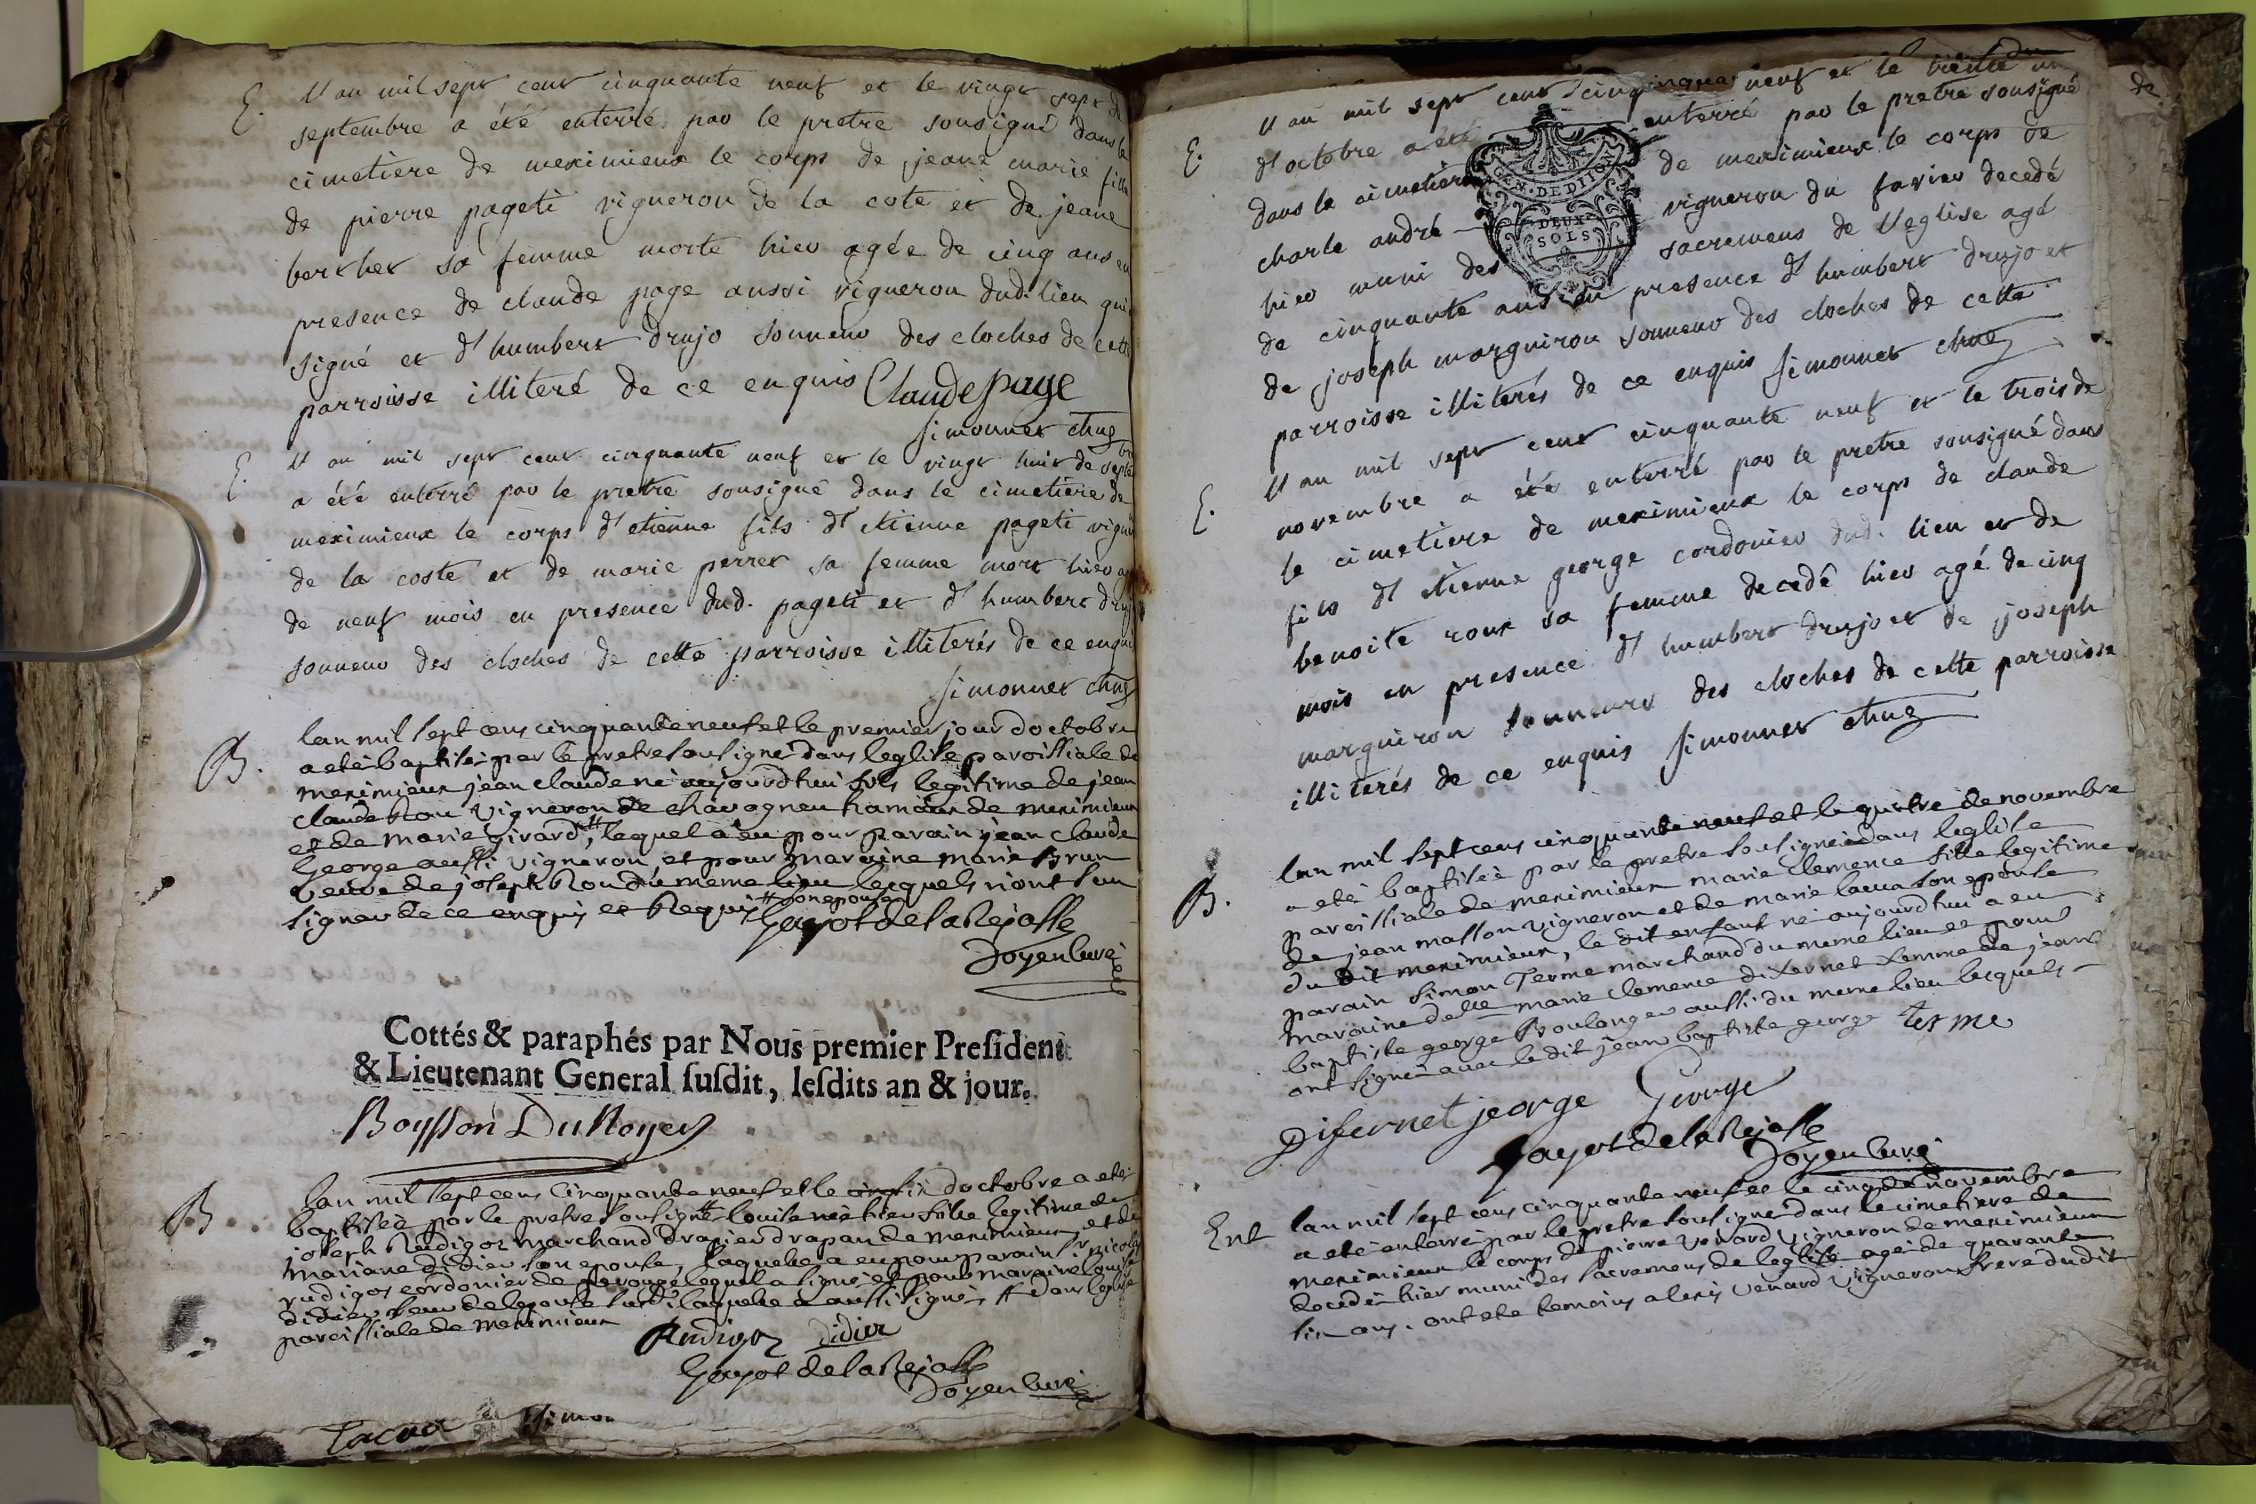 E. l'an mil sept cent cinquante neuf et le vingt sept de
septembre a été enterré par le pretre sousigné dans le
cimetiere de meximieux le corps de jeane marie fille
de pierre pageti vigneron de la cote et de jeane
berthet sa femme morte hier agée de cinq ans en
presence de claude page aussi vigneron dud. lieu qui a
signé et d'humbert drujo sonneur des cloches de cette
parroisse illiteré de ce enquis Claude page
simonnet
E. l'an mil sept cent cinquante neuf et le vingt huit de septembre
a été enterré par le pretre sousigné dans le cimetiere de
meximieux le corps d'etienne fils d'etienne pageti
de la coste et de marie perret sa femme mort hier
de neuf mois en presence dud. pageti et d'humbert
sonneur des cloches de cette parroisse illiterés de ce
simonnet
B. lan mil sept cens cinquante neuf et le premier jour doctobre
a eté baptisé par le pretre sousigné dans leglise paroissiale de
meximieux jean claude né aujourdhui fils legitime de jean
claude vigneron de chavagneu hamau de meximieux
et de marie girard #, lequel a eu pour parain jean claude
george aussi vigneron et pour maraine marie brun
veuve de joseph du meme lieu lesquels n'ont sçu
signer de ce enquis et requis # son epouse
Gayot de la Rejasse
Doyen Curé
Cottés & paraphés par Nous premier President
& Lieutenant General susdit, lesdits an & jour.
Boysson Du Noyer
B lan mil sept cens Cinquante neuf et le doctobre a eté
baptisée par le pretre sousigné # louise née hier fille legitime de
joseph Rudigoz marchand drapier drapan de meximieux et de
mariane didier son epouse, laquelle a eu pour parain sr nicolas
rudigoz cordonier de perouge lequel a signé et pour maraine louise
didier soeur de lepouse susd. laquelle a aussi signé # dans leglise
paroissiale de meximieux
Rudigoz didier
Gayot de la Rejasse
Doyen Curé
E. l'an mil sept cent cinquante neuf et le trente un
d'octobre a été enterré par le pretre sousigné
dans le cimetiere de meximieux le corps de
charle andré vigneron du favier decedé
hier muni des sacremens de l'eglise agé
de cinquante ans en presence d'humbert drujo et
de joseph marguiron sonneur des cloches de cette
parroisse illiterés de ce enquis simonnet
GEN. DE DIJON
DEUX
SOLS
E. l'an mil sept cent cinquante neuf et le trois de
novembre a été enterré par le pretre sousigné dans
le cimetiere de meximieux le corps de claude
fils d'etienne george cordonier dud. lieu et de
benoite roux sa femme decedé hier agé de cinq
mois en presence d'humbert drujo et de joseph
marguiron sonneurs des cloches de cette parroisse
illiterés de ce enquis simonnet
B. lan mil sept cens cinquante neuf et le quatre de novembre
a eté baptisée par le pretre sousigné dans leglise
paroissiale de meximieux marie Clemence fille legitime
de jean masson vigneron et de marie lacua son epouse
du dit meximieux, le dit enfant né aujourdhui a eu
parain simon Terme marchand du meme lieu et pour
maraine delle marie Clemence difernet femme de jean
baptiste george boulanger aussi du meme lieu lesquels
ont signé avec le dit jean baptiste george terme
Difernet jeorge George
Gayot de la Rejasse
Doyen Curé
Ent lan mil sept cens cinquante neuf et le cinq de novembre
a eté enterré par le pretre sousigné dans le cimetiere de
meximieux le corps de pierre venard vigneron de meximieux
decedé hier muni des sacremens de leglise agé de quarante
six ans. ont eté temoins alexis venard vigneron frere dudit